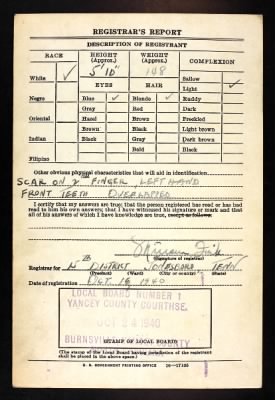 REGISTRAR'S REPORT
DESCRIPTION OF REGISTRANT
RACE HEIGHT (Approx.) WEIGHT (Approx.) COMPLEXION
5' 10" 148
White ✓ Sallow
EYES HAIR Light ✓
Negro Blue ✓ Blonde ✓ Ruddy
Gray Red Dark
Oriental Hazel Brown Freckled
Brown Black Light brown
Indian Black Gray Dark brown
Bald Black
Filipino
Other obvious physical characteristics that will aid in identification
SCAR ON 2nd FINGER, LEFT HAND
FRONT TEETH OVERLAPPED
I certify that my answers are true; that the person registered has read or has had read to him his own answers; that I have witnessed his signature or mark and that all of his answers of which I have knowledge are true, except as follows:
(Signature of registrar)
Registrar for DISTRICT JONESBORO TENN
(Precinct) (Ward) (City or county) (State)
Date of registration OCT. 16 1940
LOCAL BOARD NUMBER 1
YANCEY COUNTY COURTHSE.
OCT 24 1940
(STAMP OF LOCAL BOARD)
(The stamp of the Local Board having jurisdiction of the registrant shall be placed in the above space.)
U. S. GOVERNMENT PRINTING OFFICE 16-17105